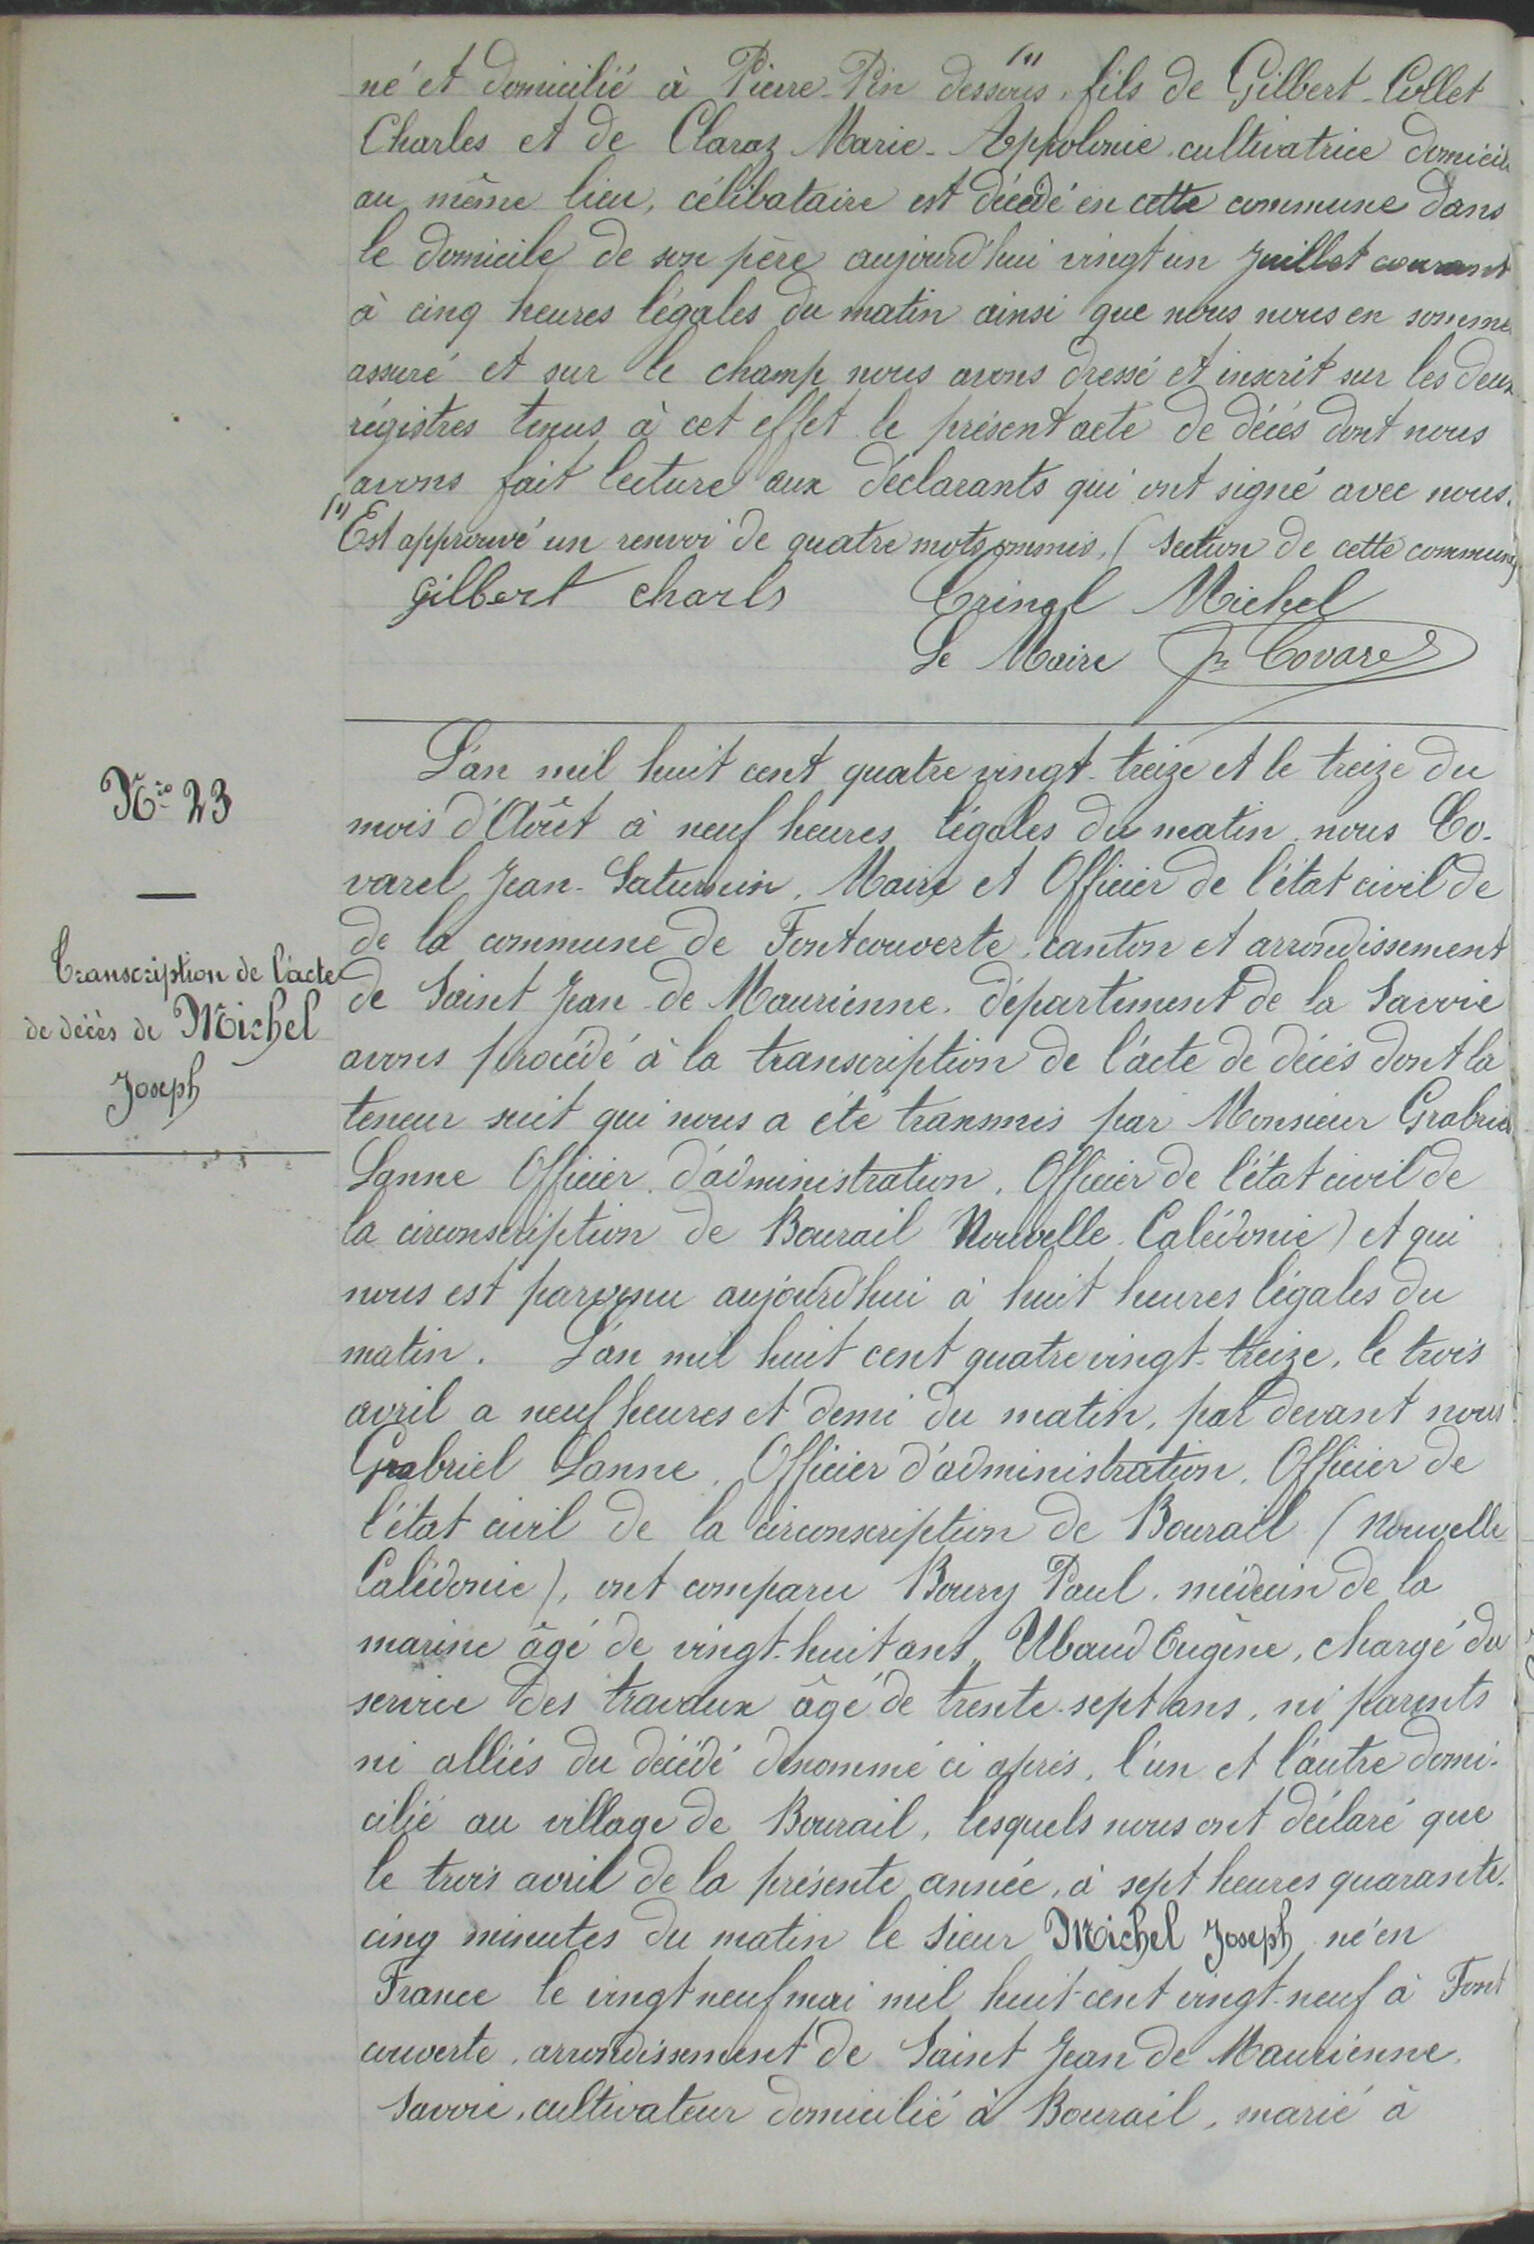 né et domicilié à Pierre-Pin dessous (1), fils de Gilbert-Collet
Charles et de Claraz Marie-Appolonie, cultivatrice domicili
au même lieu, célibataire est décédé en cette commune dans
le domicile de son père aujourd'hui vingt un Juillet courant
à cinq heures légales du matin ainsi que nous nous en somme
assuré et sur le champ nous avons dressé et inscrit sur les deux
régistres tenus à cet effet le présent acte de décès dont nous
avons fait lecture aux déclarants qui ont signé avec nous.
(1) Est approuvé un renvoi de quatre mots ommis, (section de cette commune)
gilbert charls Tringl Michel
Le Maire Jn Covarel
N.ro 23
Transcription de l'acte
de décès de Michel
Joseph
L'an mil huit cent quatre vingt-treize et le treize du
mois d'Août à neuf heures légales du matin, nous Co-
varel Jean-Saturnin, Maire et Officier de l'état civil de
de la commune de Fontcouverte, canton et arrondissement
de Saint Jean-de Maurienne, département de la Savoie
avons procédé à la transcription de l'acte de décès dont la
teneur suit qui nous a été transmis par Monsieur Grabriel
Lanne Officier d'administration, Officier de l'état civil de
la circonscription de Bourail Nouvelle-Calédonie) et qui
nous est parvenu aujourd'hui à huit heures légales du
matin. L'an mil huit cent quatre vingt-treize, le trois
avril a neuf heures et demi du matin, par devant nous
Grabriel Lanne, Officier d'administration, Officier de
l'état civil de la circonscription de Bourail (Nouvelle
Calédonie), ont comparu Boury Paul, médecin de la
marine âgé de vingt-huit ans, Ubaud Eugène, chargé du
service des travaux âgé de trente-sept ans, ni parents
ni alliés du décédé dénommé ci après, l'un et l'autre domi-
cilié au village de Bourail, lesquels nous ont déclaré que
le trois avril de la présente année, à sept heures quarante-
cinq minutes du matin le sieur Michel Joseph né en
France le vingt neuf mai mil huit-cent vingt-neuf à Font
couverte, arrondissement de Saint Jean de Maurienne,
Savoie, cultivateur domicilié à Bourail, marié à